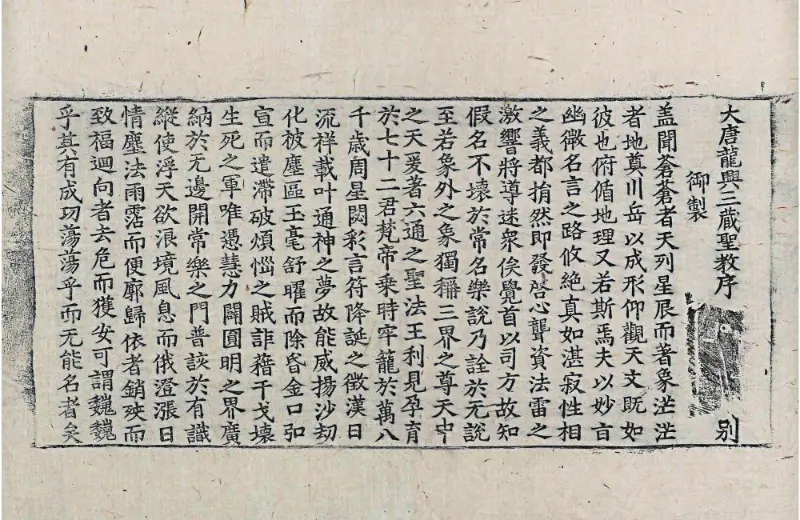 大唐龍興三藏聖教序 別
御製
盖聞蒼蒼者天列星辰而著象茫茫
者地奠川岳以成形仰觀天文既如
彼也俯循地理又若斯焉夫以妙旨
幽微名言之路攸絶真如湛寂性相
之義都捐然即發啓心聾資法雷之
激響將導迷衆俟覺首以司方故知
假名不壞於常名樂說乃詮於无說
至若象外之象獨稱三界之尊天中
之天爰著六通之聖法王利見孕育
於七十二君梵帝乘時牢籠於萬八
千歲周星閟彩言符降誕之徵漢日
流祥載叶通神之夢故能威揚沙劫
化被塵區玉毫舒曜而除昏金口弘
宣而遣滯破煩惱之賊詎藉干戈壞
生死之軍唯憑慧力闢圓明之界廣
納於无邊開常樂之門普該於有識
縱使浮天欲浪境風息而俄澄漲日
情塵法雨霑而便廓歸依者銷殃而
致福迴向者去危而獲安可謂巍巍
乎其有成功蕩蕩乎而无能名者矣